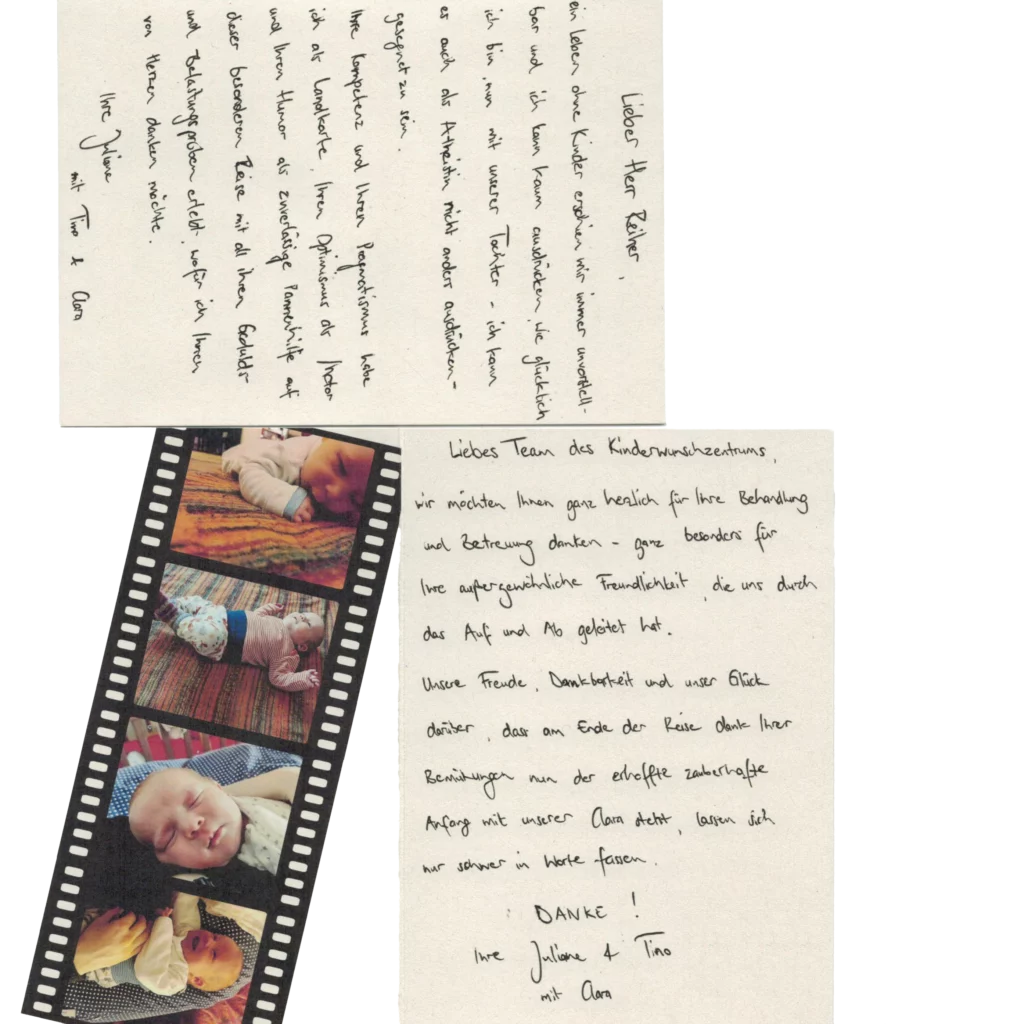 Lieber Herr Reiher,
ein Leben ohne Kinder erschien mir immer unvorstell-
bar und ich kann kaum ausdrücken, wie glücklich
ich bin, nun mit unserer Tochter - ich kann
es auch als Atheistin nicht anders ausdrücken -
gesegnet zu sein.
Ihre Kompetenz und Ihren Pragmatismus habe
ich als Landkarte, Ihren Optimismus als Motor
und Ihren Humor als zuverlässige Pannenhilfe auf
dieser besonderen Reise mit all ihren Gedulds-
und Belastungsproben erlebt, wofür ich Ihnen
von Herzen danken möchte.
Ihre Juliane
mit Tino & Clara
Liebes Team des Kinderwunschzentrums,
wir möchten Ihnen ganz herzlich für Ihre Behandlung
und Betreuung danken - ganz besonders für
Ihre außergewöhnliche Freundlichkeit, die uns durch
das Auf und Ab geleitet hat.
Unsere Freude, Dankbarkeit und unser Glück
darüber, dass am Ende der Reise dank Ihrer
Bemühungen nun der erhoffte zauberhafte
Anfang mit unserer Clara steht, lassen sich
nur schwer in Worte fassen.
DANKE!
Ihre Juliane & Tino
mit Clara